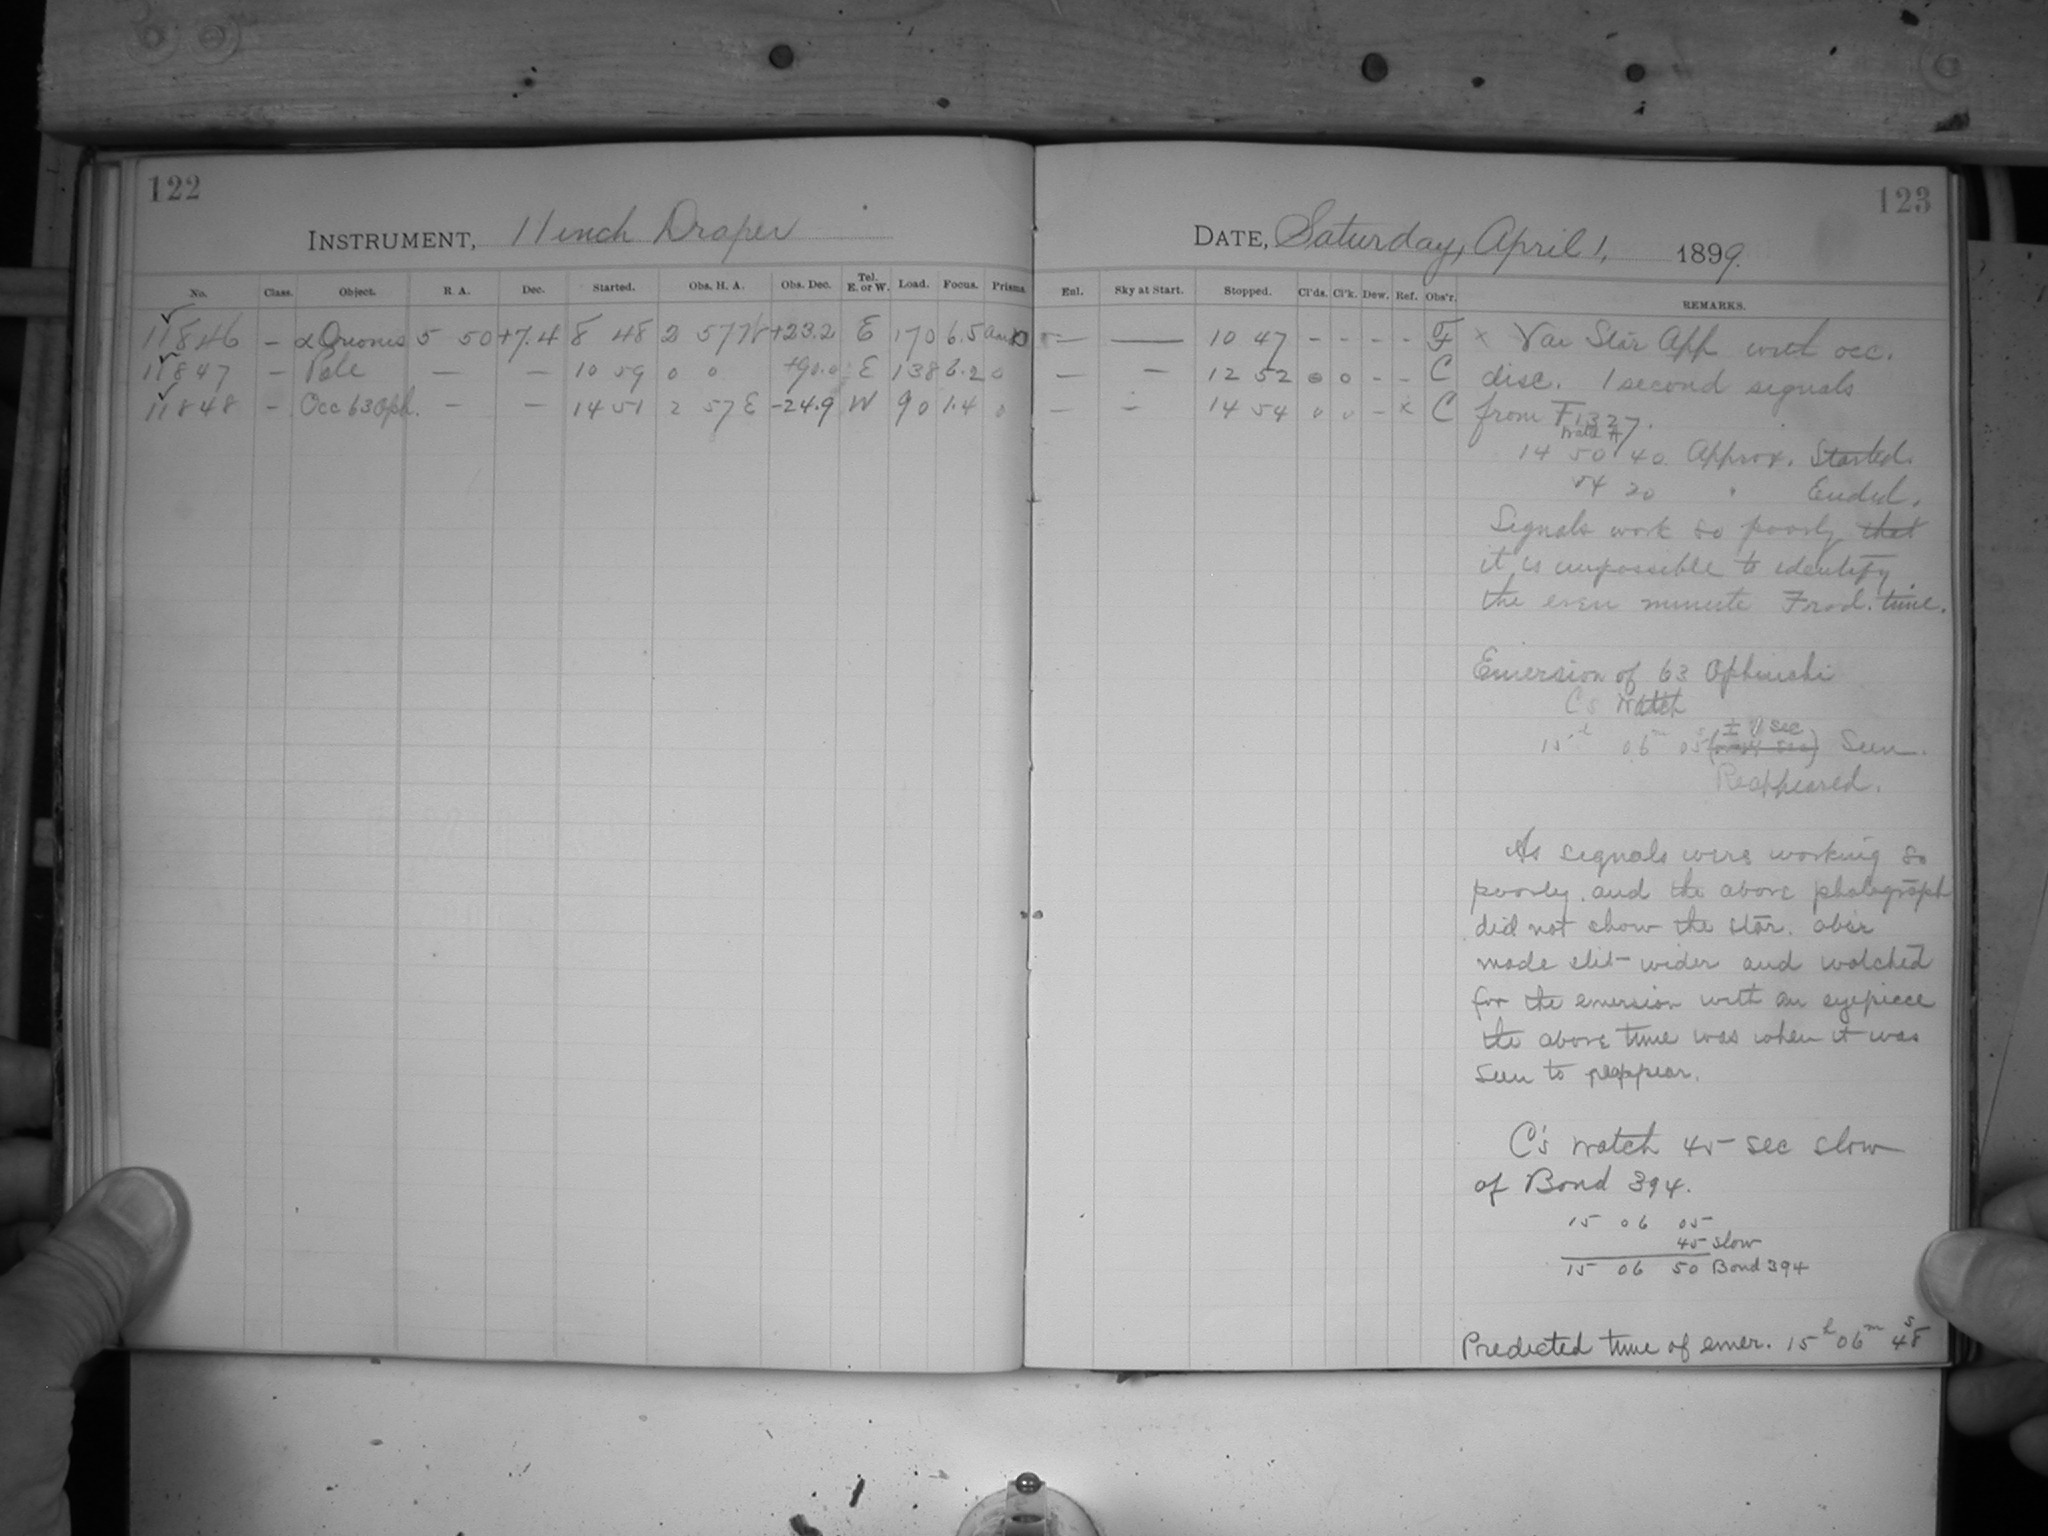 122
INSTRUMENT, 11 inch Draper
No. Class. Object. R. A. Dec. Started. Obs. H. A. Obs. Dec. Tel. E. or W. Load. Focus. Prisms.
11846 - α Orionis 5 50 +7.4 8 48 2 57 W +23.2 E 170 6.5
11847 - Pole - - 10 59 0 0 +90.0 E 138 6.2 0
11848 - Occ 63 Oph. - - 14 51 2 57 E -24.9 W 90 1.4 0
123
DATE, Saturday, April 1, 1899.
Enl. Sky at Start. Stopped. Cl'ds. Cl'k. Dew. Ref. Obs'r. REMARKS.
— — 10 47 - - - - F
— — 12 52 0 0 - - C
— - 14 54 0 0 - x C
x Var Star App with occ.
disc. 1 second signals
from F 1327.
Watch
14 50 40 Approx. Started.
54 20 " Ended.
Signals work so poorly that
it is impossible to identify
the even minute Frod. time.
Emersion of 63 Ophiuchi
C's Watch
± 1 sec
15h 06m 05s Seen.
Reappeared.
As signals were working so
poorly and the above photograph
did not show the star. obsr
made slit wider and watched
for the emersion with an eyepiece
the above time was when it was
seen to reappear.
C's watch 45 sec slow
of Bond 394.
15 06 05
45 slow
15 06 50 Bond 394
Predicted time of emer. 15h 06m 48s